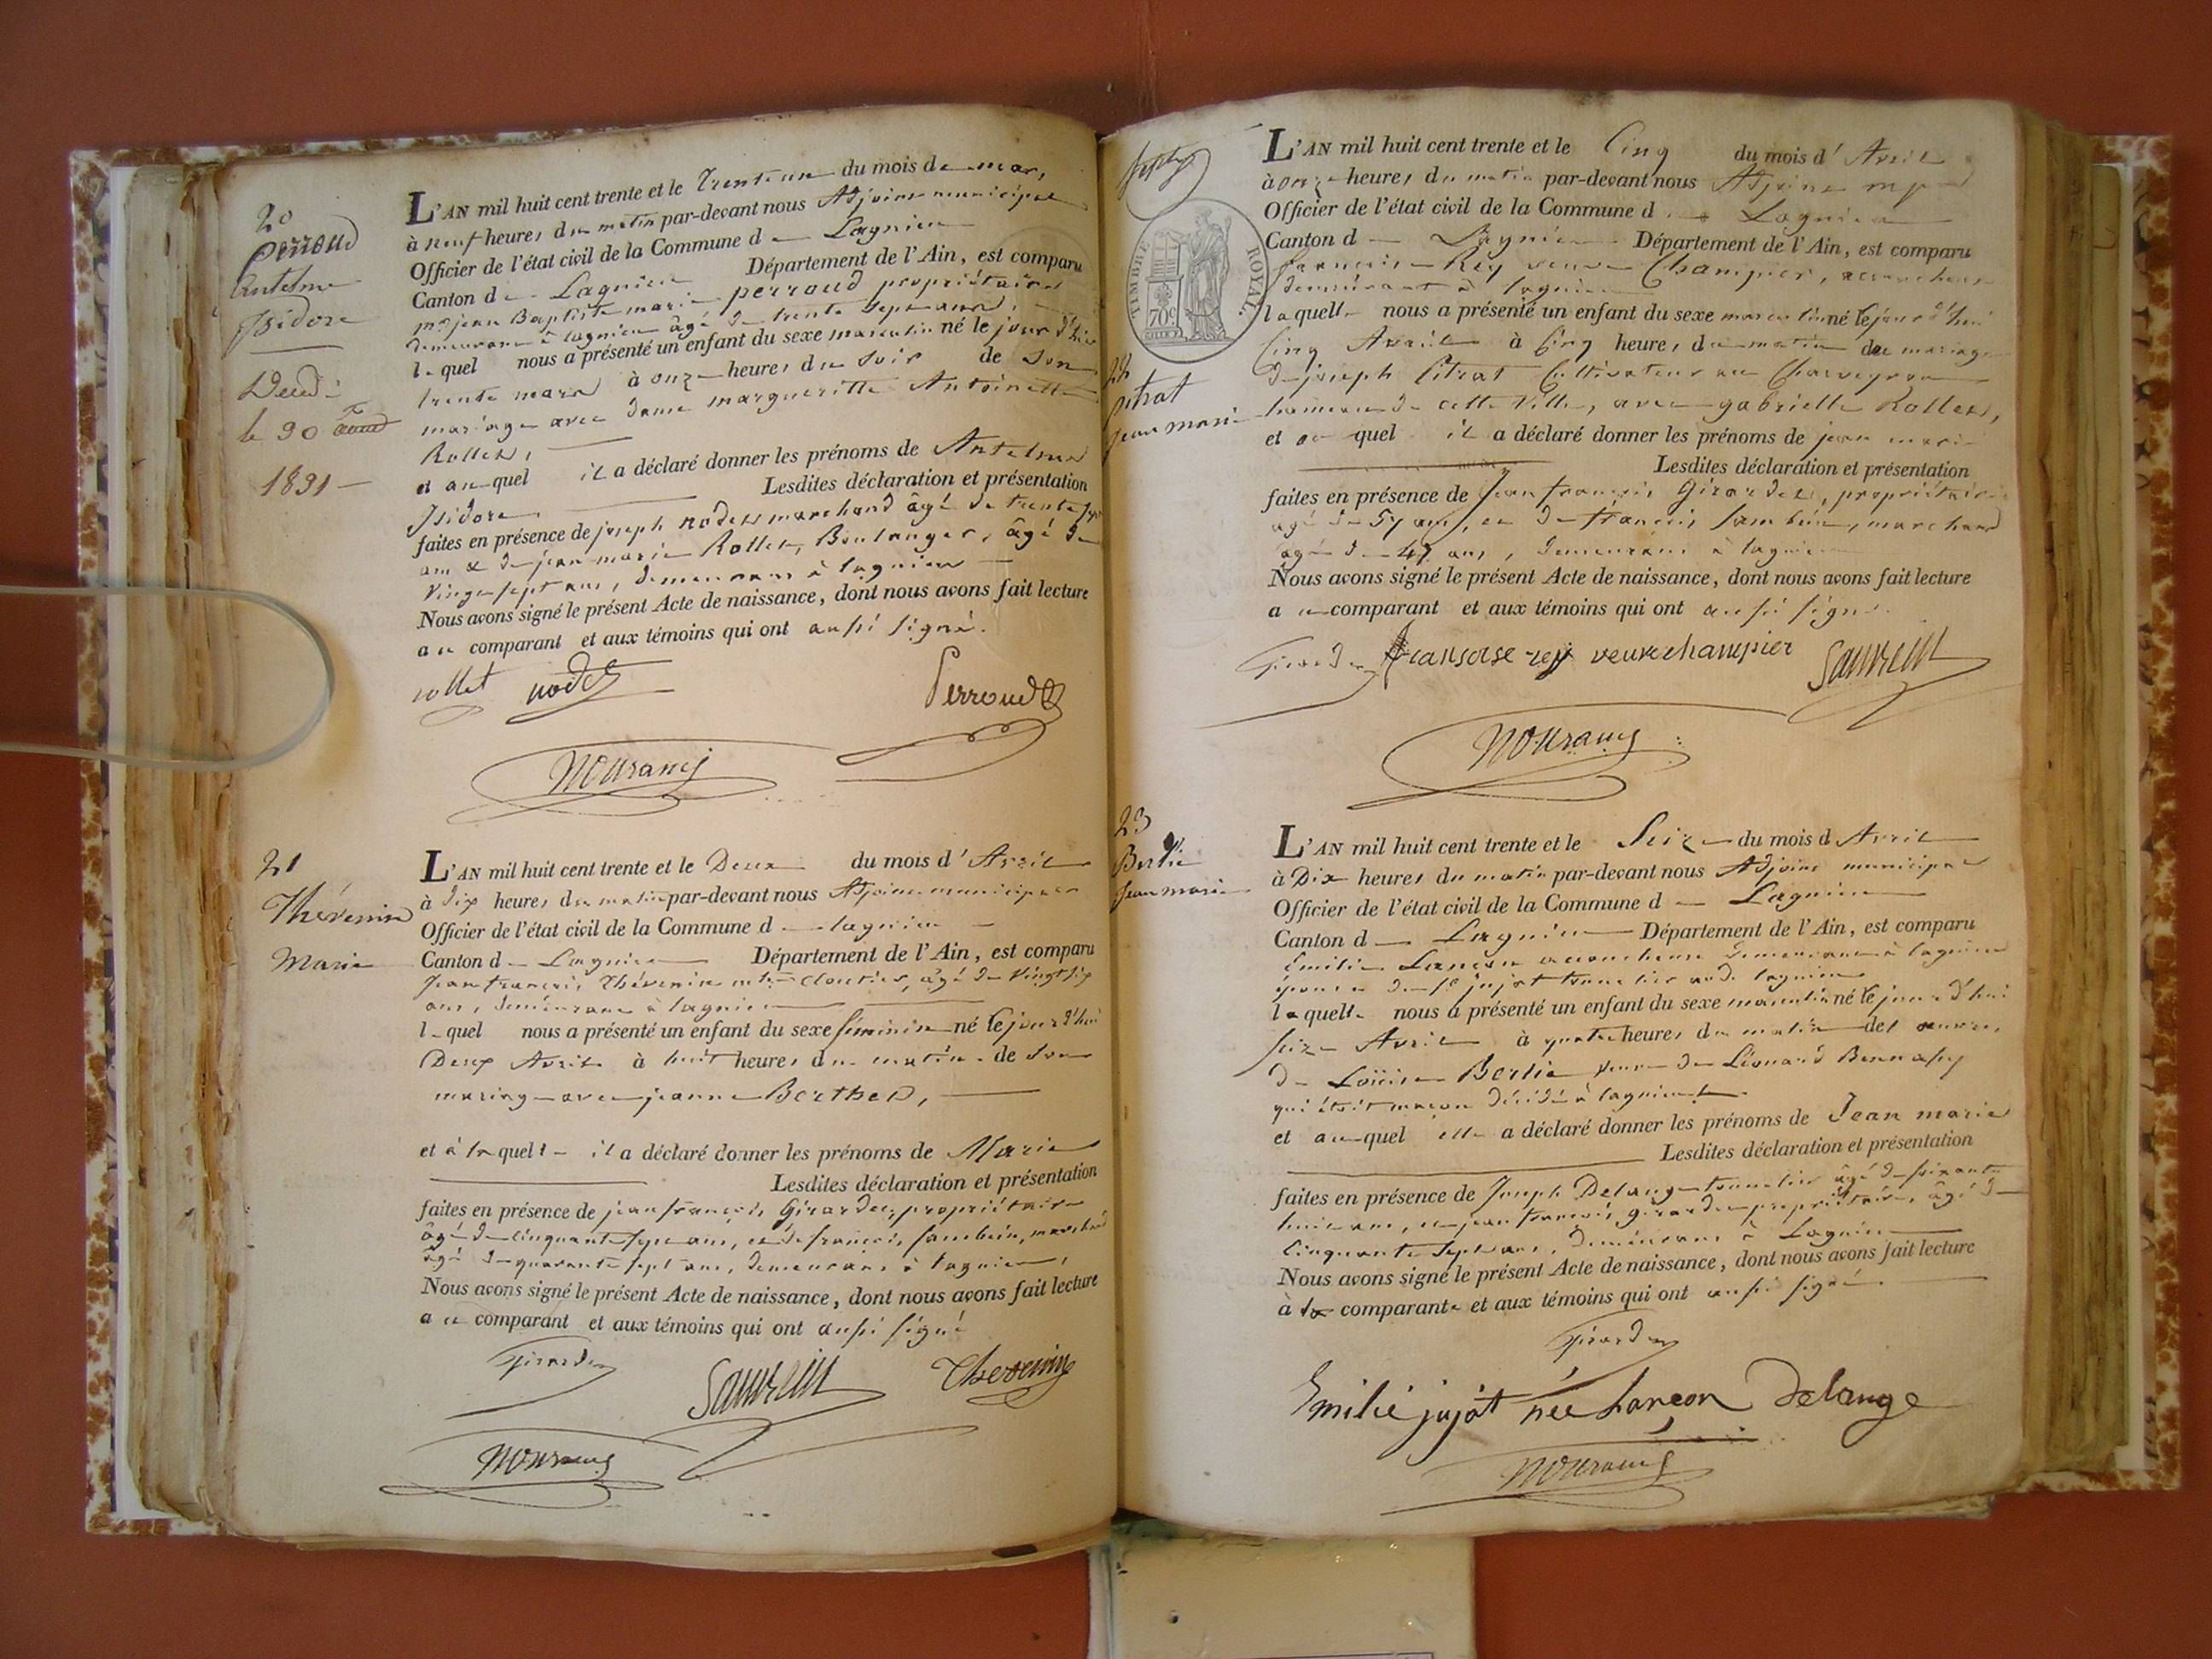 20
Perroud
Antelme
Isidore
Décédé
le 30
1831
L'AN mil huit cent trente et le trente un du mois de mars,
à neuf heures du matin par-devant nous Adjoint municipal
Officier de l'état civil de la Commune de Lagnieu
Canton de Lagnieu Département de l'Ain, est comparu
jean Baptiste marie perroud propriétaire
demeurant à lagnieu âgé de trente sept ans,
lequel nous a présenté un enfant du sexe masculin né le jour d'hier
trente mars à onze heures du soir de son
mariage avec dame margueritte Antoinette
Rollet,
et auquel il a déclaré donner les prénoms de Antelme
Isidore Lesdites déclaration et présentation
faites en présence de joseph nodet marchand âgé de trente
ans & de jean marie Rollet, Boulanger, âgé de
vingt sept ans, demeurans à lagnieu
Nous avons signé le présent Acte de naissance, dont nous avons fait lecture
au comparant et aux témoins qui ont aussi signé.
rollet nodet Perroud
21
Thévenin
Marie
L'AN mil huit cent trente et le Deux du mois d'Avril
à dix heures du matin par-devant nous Adjoint municipal
Officier de l'état civil de la Commune de lagnieu
Canton de Lagnieu Département de l'Ain, est comparu
Jean françois Thévenin cloutier, âgé de vingt six
ans, demeurant à lagnieu
lequel nous a présenté un enfant du sexe féminin né le jour d'hui
Deux Avril à huit heures du matin de son
mariage avec jeanne Berthet,
et à laquelle il a déclaré donner les prénoms de Marie
Lesdites déclaration et présentation
faites en présence de jean françois Girardet, propriétaire
âgé de cinquante sept ans, et de françois sambein, marchand
âgé de quarante sept ans, demeurans à lagnieu,
Nous avons signé le présent Acte de naissance, dont nous avons fait lecture
au comparant et aux témoins qui ont aussi signé
Girardet
Thevenin
TIMBRE ROYAL
70c
22
pitrat
jean marie
L'AN mil huit cent trente et le Cinq du mois d'Avril
à onze heures du matin par-devant nous Adjoint mpal
Officier de l'état civil de la Commune de Lagnieu
Canton de Lagnieu Département de l'Ain, est comparu
françoise Rey veuve Champier, accoucheuse
demeurant à lagnieu
laquelle nous a présenté un enfant du sexe masculin né le jour d'hui
Cinq Avril à Cinq heures du matin du mariage
de joseph Pitrat Cultivateur au Charveyron
hameau de cette Ville, avec gabrielle Rollet,
et auquel il a déclaré donner les prénoms de jean marie
Lesdites déclaration et présentation
faites en présence de Jean françois Girardet, propriétaire
âgé de 57 ans, et de françois sambein, marchand
âgé de 47 ans, demeurans à lagnieu
Nous avons signé le présent Acte de naissance, dont nous avons fait lecture
au comparant et aux témoins qui ont aussi signé.
Girardet fransoise rey veuve champier
23
Bertie
Jean marie
L'AN mil huit cent trente et le Seize du mois d Avril
à Dix heures du matin par-devant nous Adjoint municipal
Officier de l'état civil de la Commune d Lagnieu
Canton d Lagnieu Département de l'Ain, est comparu
Emilie Lançon accoucheuse demeurant à lagnieu
épouse de jujat tonnelier aud. lagnieu
laquelle nous a présenté un enfant du sexe masculin né le jour d'hui
seize Avril à quatre heures du matin des œuvres
de Loüise Bertie veuve de Léonard
qui étoit maçon décédé à lagnieu
et auquel elle a déclaré donner les prénoms de Jean marie
Lesdites déclaration et présentation
faites en présence de Joseph Delange tonnelier âgé de soixante
huit ans, et jean françois girardet propriétaire, âgé de
cinquante sept ans, demeurans à Lagnieu
Nous avons signé le présent Acte de naissance, dont nous avons fait lecture
à la comparante et aux témoins qui ont aussi signé
Girardet
Emilie jujat née Lançon Delange